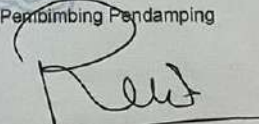 Pembimbing Pendamping